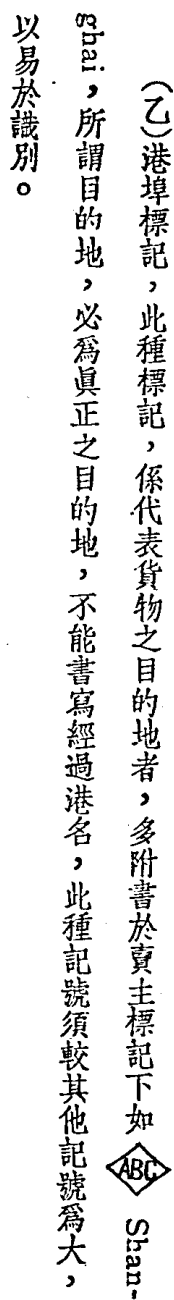 （乙）港埠標記，此種標記，係代表貨物之目的地者，多附書於賣主標記下如 ABC Shan-
ghai，所謂目的地，必爲眞正之目的地，不能書寫經過港名，此種記號須較其他記號爲大，
以易於識別。